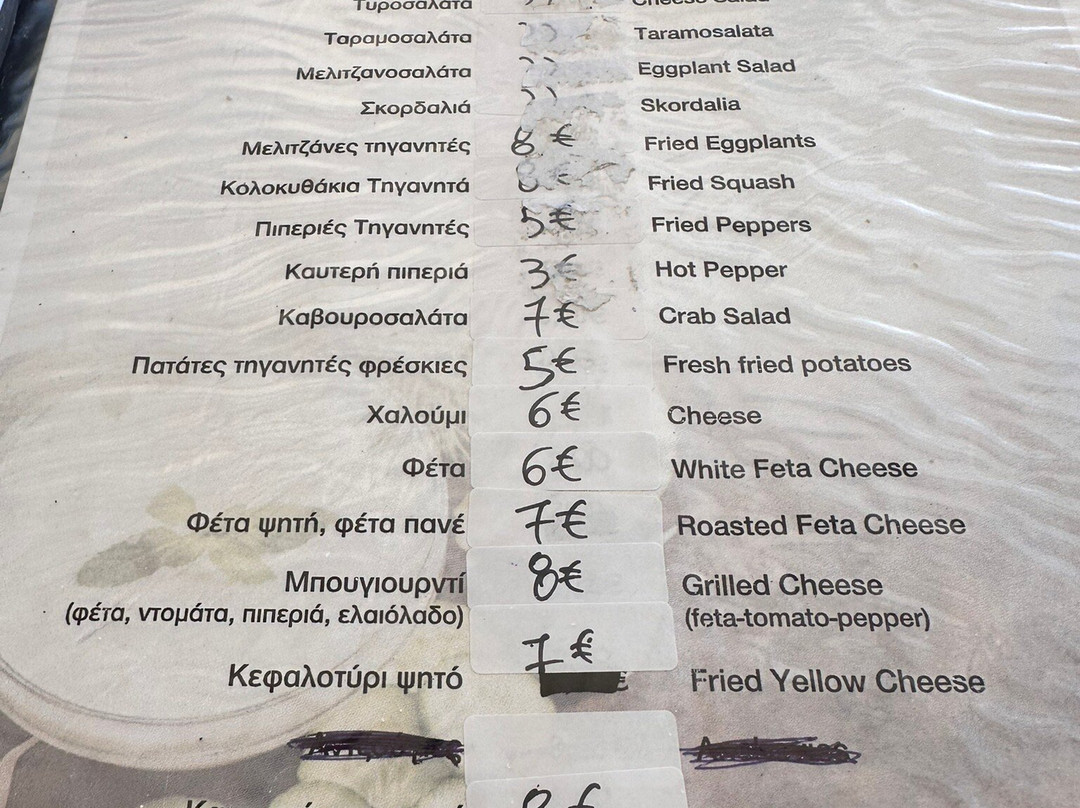 Τυροσαλάτα Cheese Salad
Ταραμοσαλάτα ,, Taramosalata
Μελιτζανοσαλάτα ,, Eggplant Salad
Σκορδαλιά ,, Skordalia
Μελιτζάνες τηγανητές 8 € Fried Eggplants
Κολοκυθάκια Τηγανητά 8 € Fried Squash
Πιπεριές Τηγανητές 5€ Fried Peppers
Καυτερή πιπεριά 3€ Hot Pepper
Καβουροσαλάτα 7€ Crab Salad
Πατάτες τηγανητές φρέσκιες 5€ Fresh fried potatoes
Χαλούμι 6€ Cheese
Φέτα 6€ White Feta Cheese
Φέτα ψητή, φέτα πανέ 7€ Roasted Feta Cheese
Μπουγιουρντί 8€ Grilled Cheese
(φέτα, ντομάτα, πιπεριά, ελαιόλαδο) (feta-tomato-pepper)
Κεφαλοτύρι ψητό 7€ € Fried Yellow Cheese